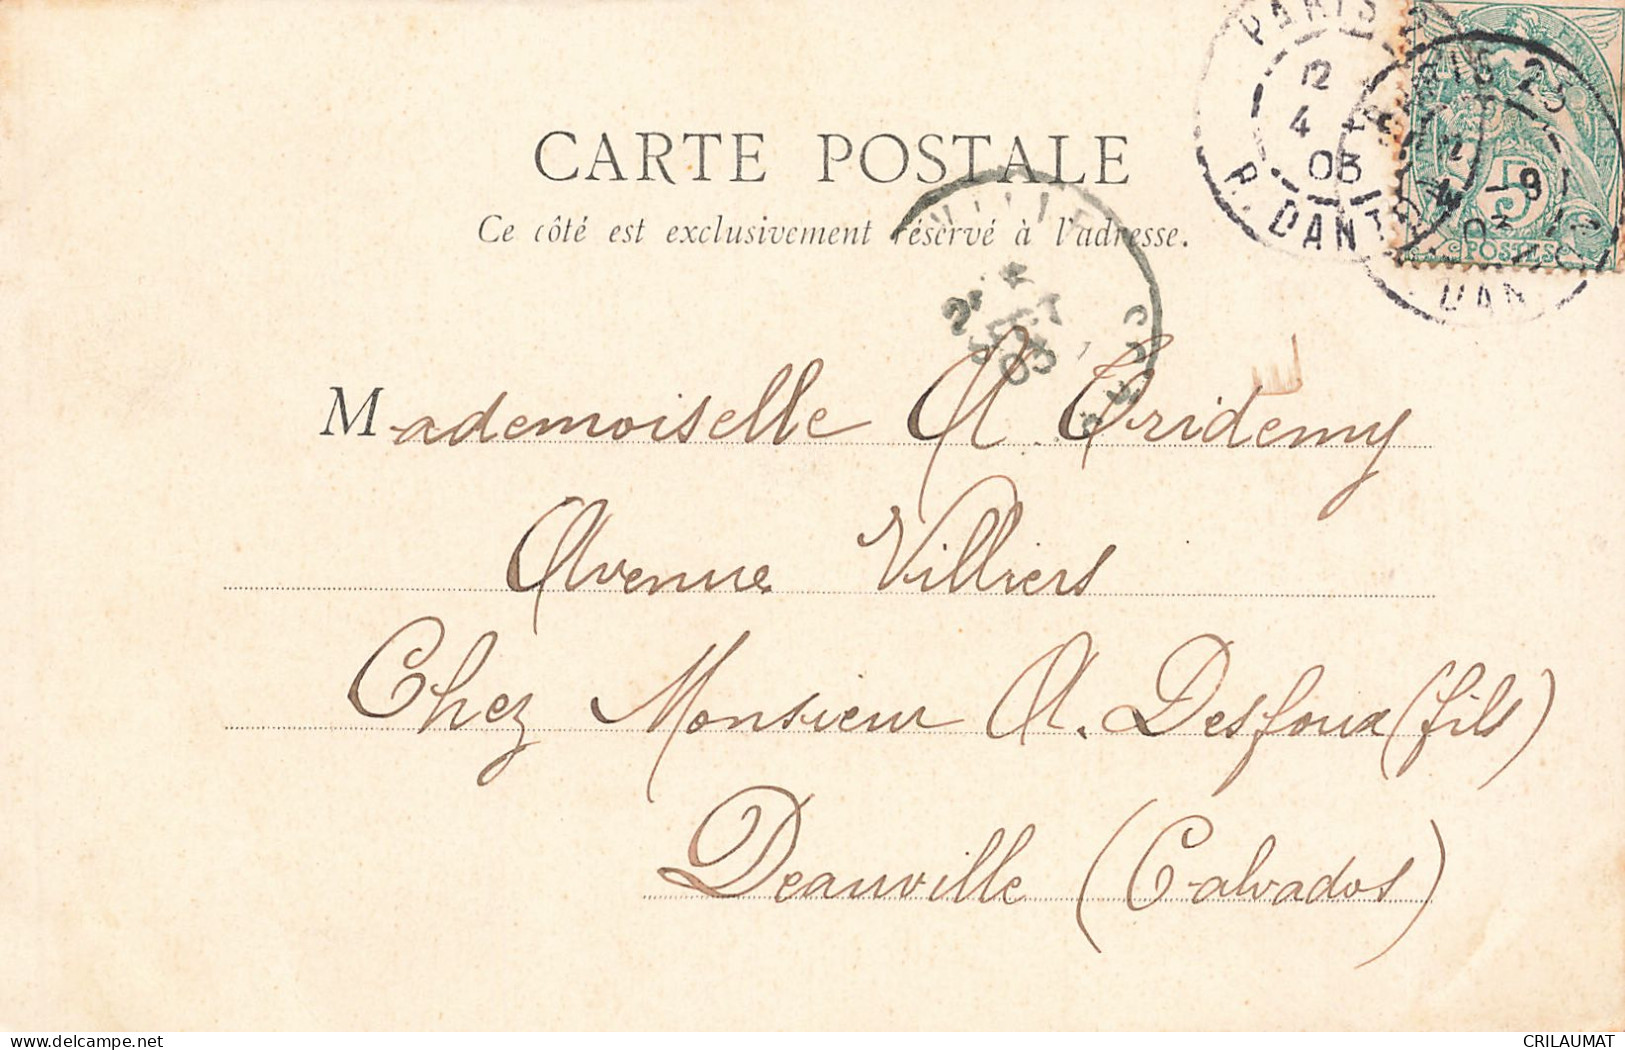 CARTE POSTALE
Ce côté est exclusivement réservé à l'adresse.
PARIS
12
4
03
R. DANTON
PARIS 25
4 -9
03
DAN
5
POSTES
03
Mademoiselle A. Tridemy
Avenue Villiers
Chez Monsieur A. Desfoux (fils)
Deauville (Calvados)
delcampe.net
CRILAUMAT